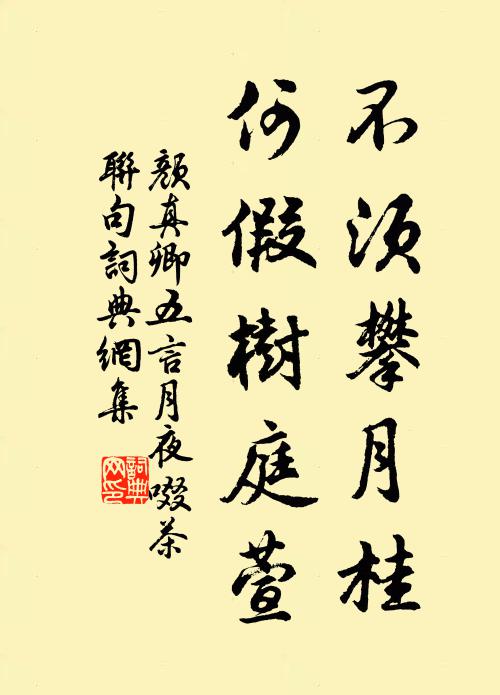 不須攀月桂
何假樹庭萱
顏真卿五言月夜啜茶
聯句詞典網集
詞典
网印